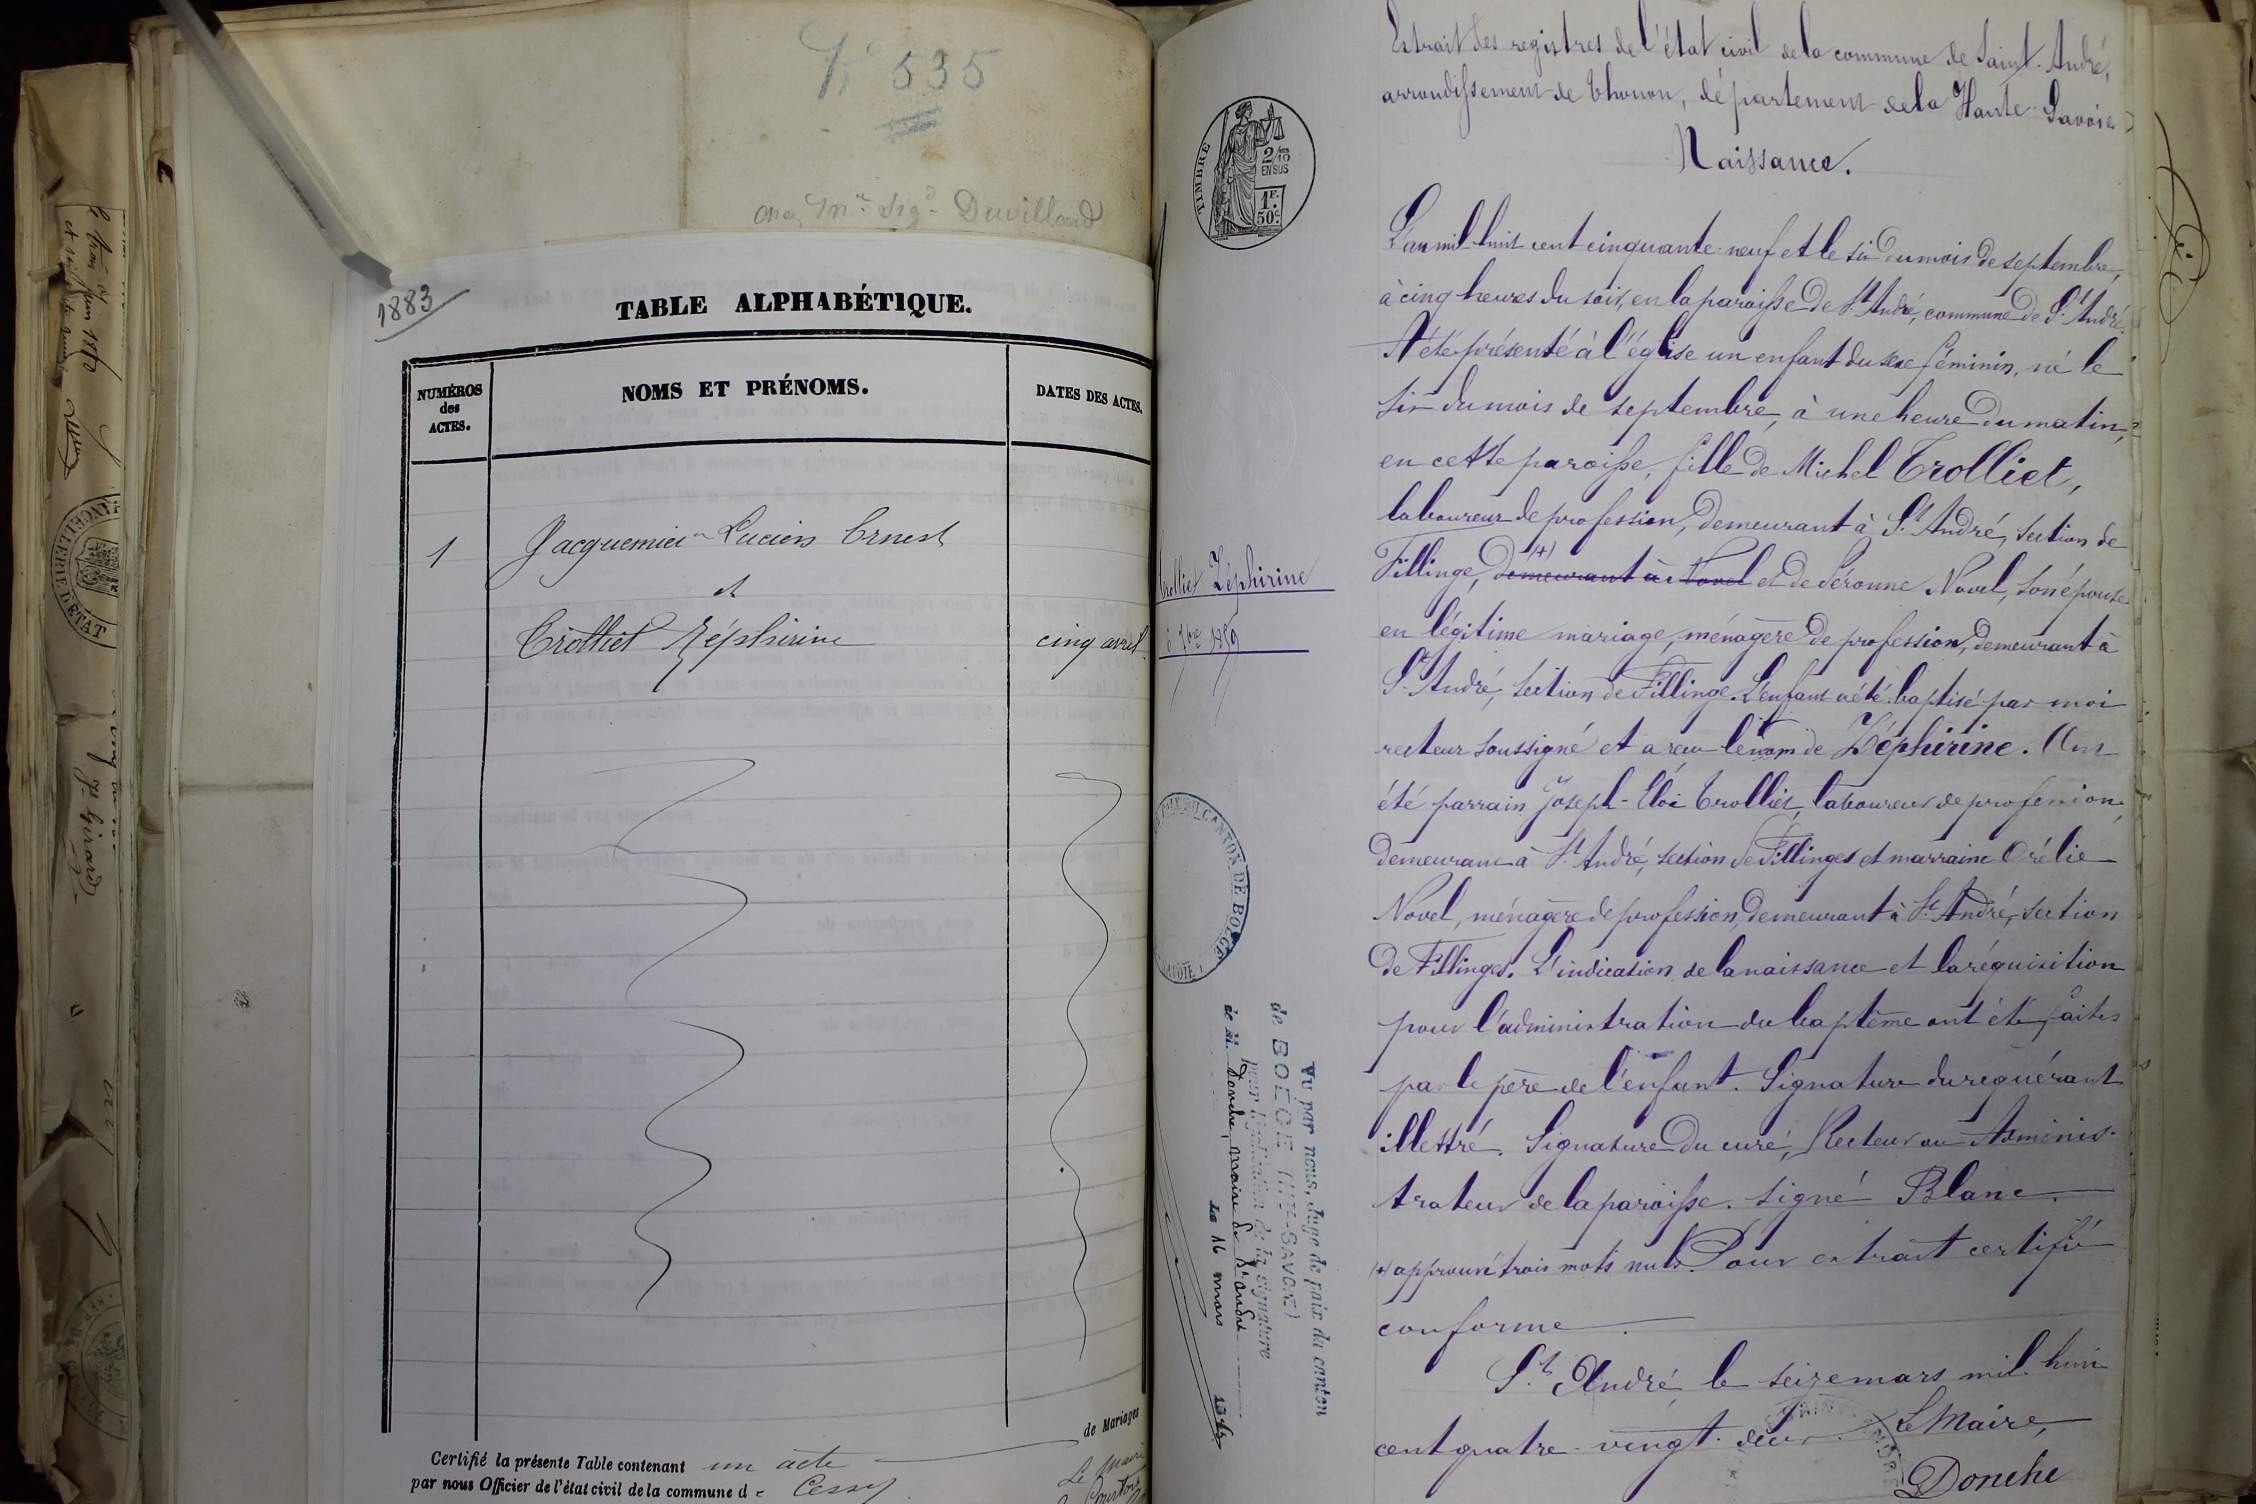 N° 535
Duvillard
1883
TABLE ALPHABÉTIQUE.
NUMÉROS
des
ACTES.
NOMS ET PRÉNOMS.
DATES DES ACTES.
1
Jacquemier Lucien Ernest
et
Trolliet Zéphirine
cinq avril
de Mariages
Certifié la présente Table contenant un acte
par nous Officier de l'état civil de la commune de Cessy
Le Maire
TIMBRE
2/10
EN SUS
1F.
50c.
Trolliet Zéphirine
6 7bre 1859
PAIX DU CANTON DE BOËGE
SAVOIE
Vu par nous, Juge de paix du canton
de BOËGE (HTE-SAVOIE)
pour légalisation de la signature
de M. Donche, maire de St André
Le 16 mars
Extrait des registres de l'état civil de la commune de Saint-André,
arrondissement de Thonon, département de la Haute-Savoie
Naissance.
L'an mil huit cent cinquante-neuf et le six du mois de septembre,
à cinq heures du soir, en la paroisse de St. André, commune de St. André.
A été présenté à l'église un enfant du sexe féminin, né le
six du mois de septembre, à une heure du matin,
en cette paroisse, fille de Michel Trolliet,
laboureur de profession, demeurant à St. André, section de
Fillinge, (+) demeurant à Novel et de Péronne Novel, son épouse
en légitime mariage, ménagère de profession, demeurant à
St. André, section de Fillinge. L'enfant a été baptisé par moi
recteur soussigné et a reçu le nom de Zéphirine. Ont
été parrain Joseph-Eloi Trolliet, laboureur de profession,
demeurant à St. André, section de Fillinges et marraine Orélie
Novel, ménagère de profession, demeurant à St. André, section
de Fillinges. L'indication de la naissance et la réquisition
pour l'administration du baptême ont été faites
par le père de l'enfant. Signature du requérant
illettré. Signature du curé, Recteur ou Adminis-
trateur de la paroisse. signé Blanc.
(+) approuvé trois mots nuls. Pour extrait certifié
conforme
St. André le seize mars mil huit
cent quatre-vingt-deux. Le Maire,
Donche
CHANCELLERIE D'ÉTAT
Girard